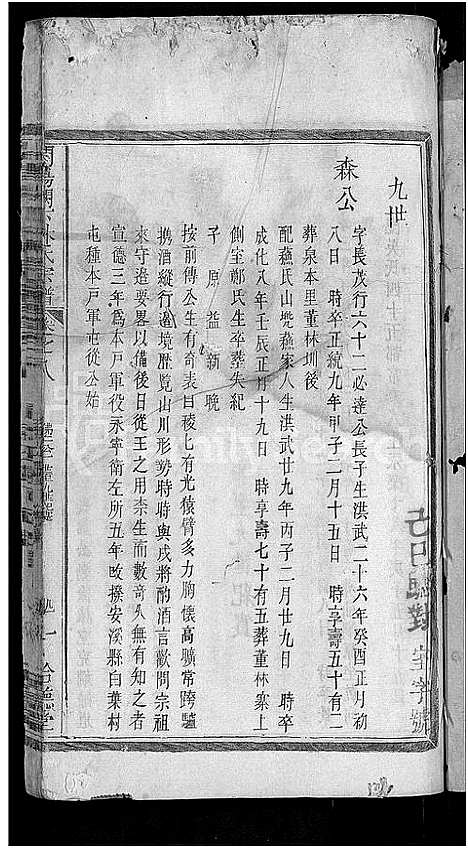 九世
森公
字長茂行六十二必達公長子生洪武二十六年癸酉正月初
八日 時卒正統九年甲子二月十五日 時享壽五十有二
葬泉本里董林圳後
配蘓氏山兠蘓家人生洪武廿九年丙子二月廿九日 時卒
成化八年壬辰正月十九日 時享壽七十有五葬董林寨上
側室鄭氏生卒葬失紀
子 原 益 新 晚
按前傳公生有奇表目稜七有光猿臂多力胸懷高曠常跨驢
携酒縱行邊境歷覧山川形勢時時與戍將酌酒言歡問宗祖
來守邊要畧以備後日從王之用柰生而數奇人無有知之者
宣德三年爲本戸軍役永寕衛左所五年改撥安溪縣白葉村
屯種本戸軍屯從公始
林氏宗譜
卷之八